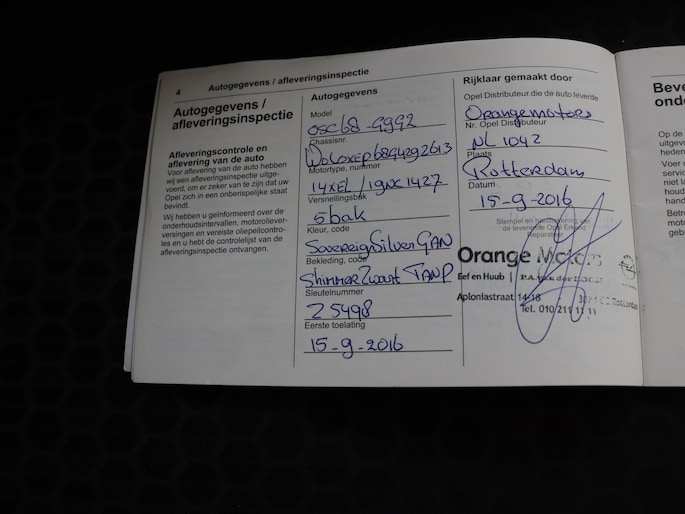 4 Autogegevens / afleveringsinspectie
Autogegevens /
afleveringsinspectie
Afleveringscontrole en
aflevering van de auto
Voor aflevering van de auto hebben
wij een afleveringsinspectie uitge-
voerd, om er zeker van te zijn dat uw
Opel zich in een onberispelijke staat
bevindt.
Wij hebben u geïnformeerd over de
onderhoudsintervallen, motoroliever-
versingen en vereiste oliepeilcontro-
les en u hebt de controlelijst van de
afleveringsinspectie ontvangen.
Autogegevens
Model
OSC68-G992
Chassisnr.
W0L0XEP68G4292613
Motortype, nummer
14XEL / 19NC1427
Versnellingsbak
5bak
Kleur, code
Sovereign Silver GAN
Bekleding, code
Shimmer Zwart TANP
Sleutelnummer
Z5498
Eerste toelating
15-9-2016
Rijklaar gemaakt door
Opel Distributeur die de auto leverde
Orangemotors
Nr. Opel Distributeur
NL1042
Plaats
Rotterdam
Datum
15-9-2016
Stempel en handtekening van
de leverende Opel Erkend
Reparateur
Orange Motors
Eef en Huub | P.A. van der
Aploniastraat 14-18
Tel. 010/211 11 11
Beve
onde
Op de
uitgevo
heden
Voer
servic
niet la
houd
hand
Betre
moto
gebru